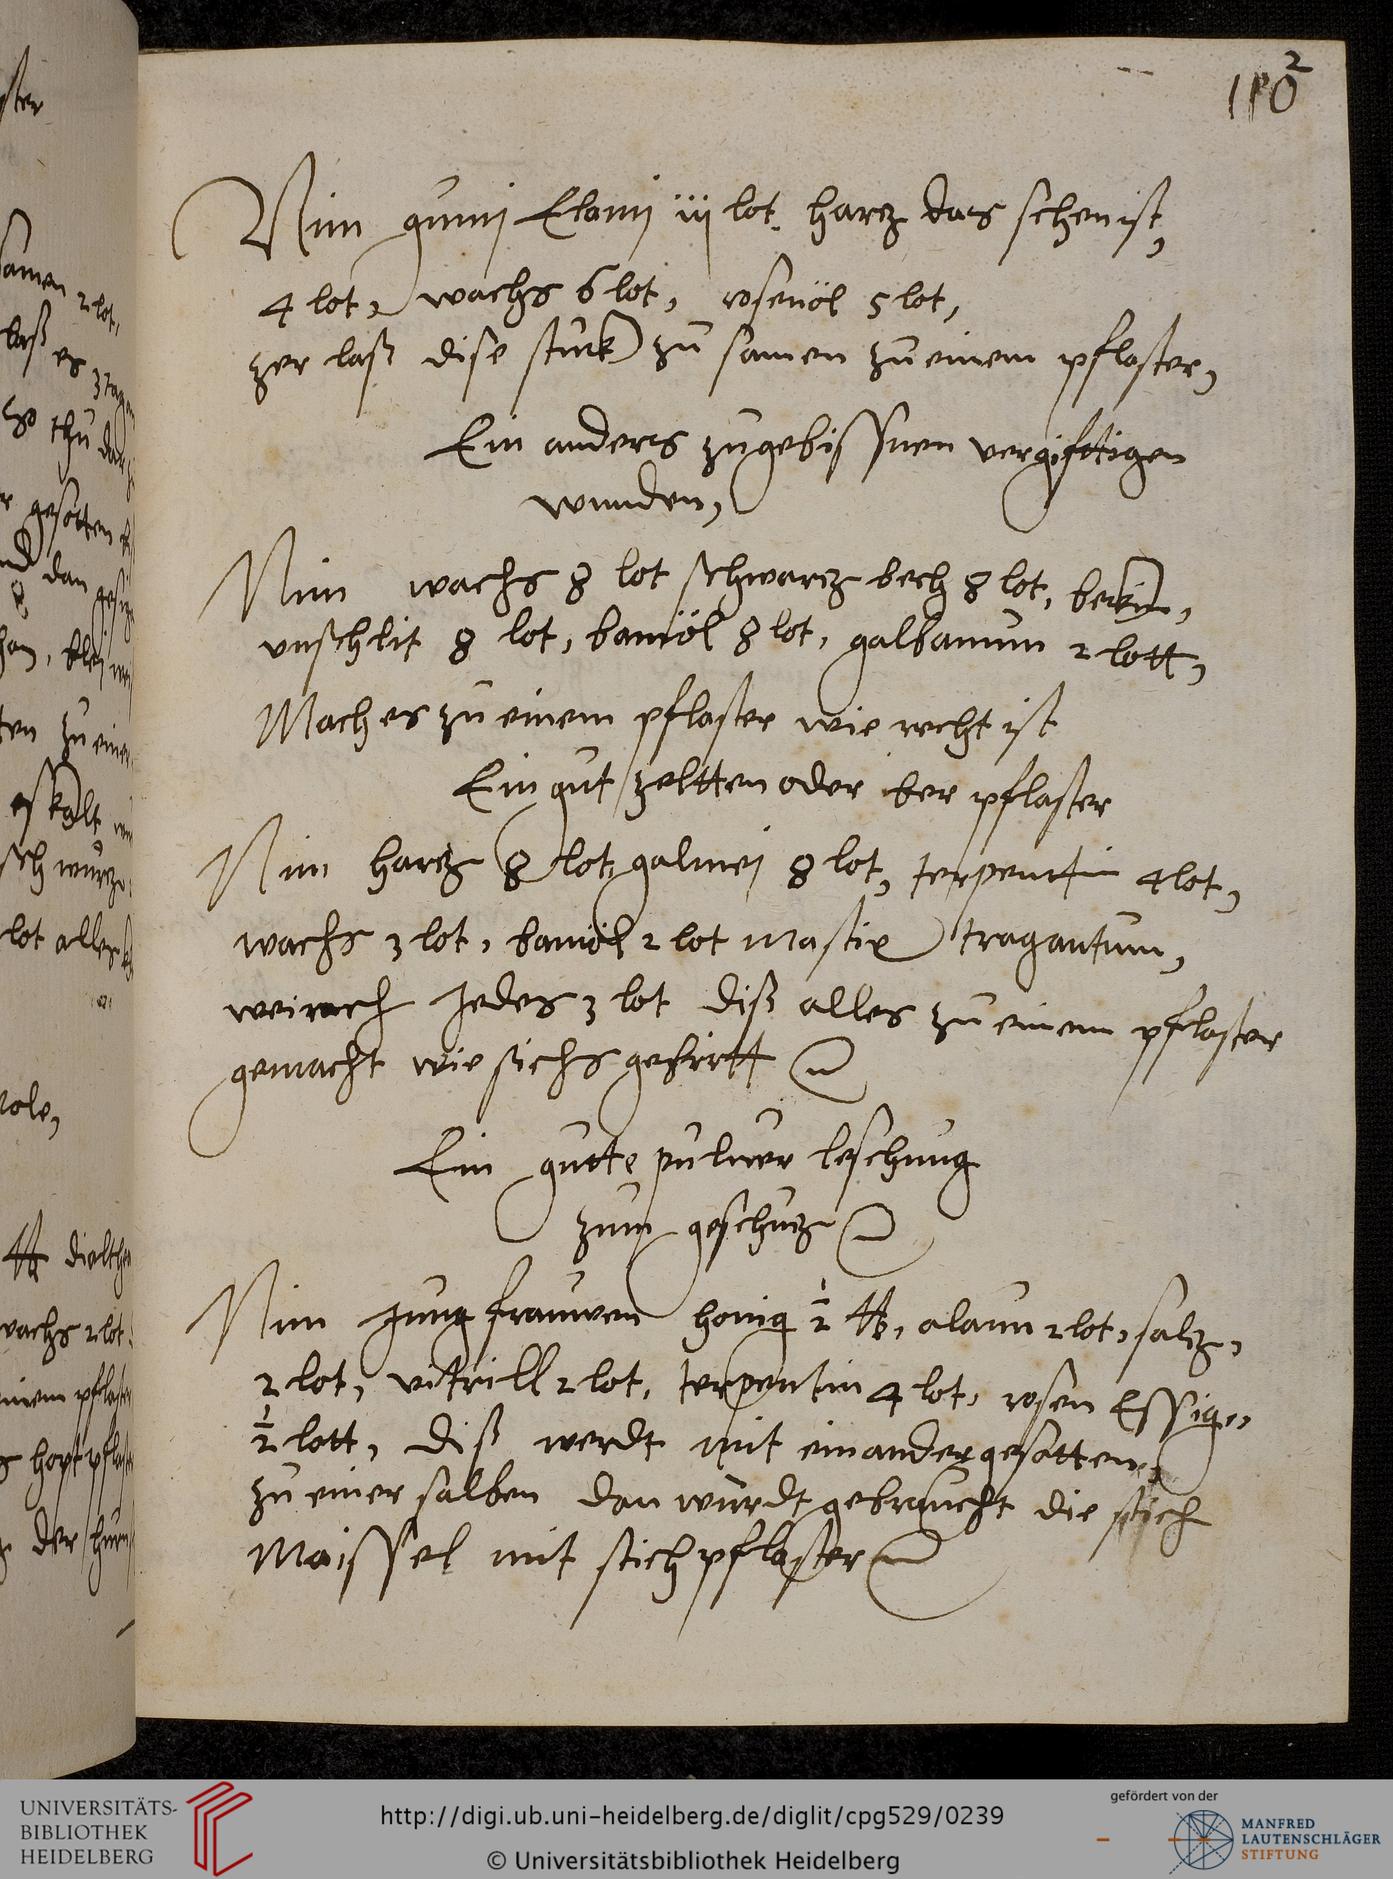 110²
Nim gumij Elamij iij lot. harz das schen ist,
4 lot, wachs 6 lot, rosenöl 5 lot,
zer laß dise stuck zu samen zu einem pflaster,
Ein anders zu gebissnen vergifftigen
wunden,
Nim wachs 8 lot schwarz bech 8 lot,
vnschlit 8 lot, bamöl 8 lot, galbanum 2 lott,
Mach es zu einem pflaster wie recht ist
Ein gut zeltten oder iber pflaster
Nim harz 8 lot, galmej 8 lot, terpenttin 4 lot,
wachs 3 lot, bamöl 2 lot Mastix tragantum,
weirach Jedes 3 lot diß alles zu einem pflaster
gemacht wie sichs gebirtt
Ein gutte puluer leschung
zum geschutz
Nim Jungfrauwen honig ½ ℔, alaun 2 lot, saltz,
2 lot, vitrill 2 lot, terpentin 4 lot, rosen Essig,
½ lott, diß werdt mit einander gesotten,
zu einer salben dan wurdt gebraucht die stich
Maissel mit stichpflaster
UNIVERSITÄTS-
BIBLIOTHEK
HEIDELBERG
http://digi.ub.uni-heidelberg.de/diglit/cpg529/0239
© Universitätsbibliothek Heidelberg
gefördert von der
MANFRED
LAUTENSCHLÄGER
STIFTUNG